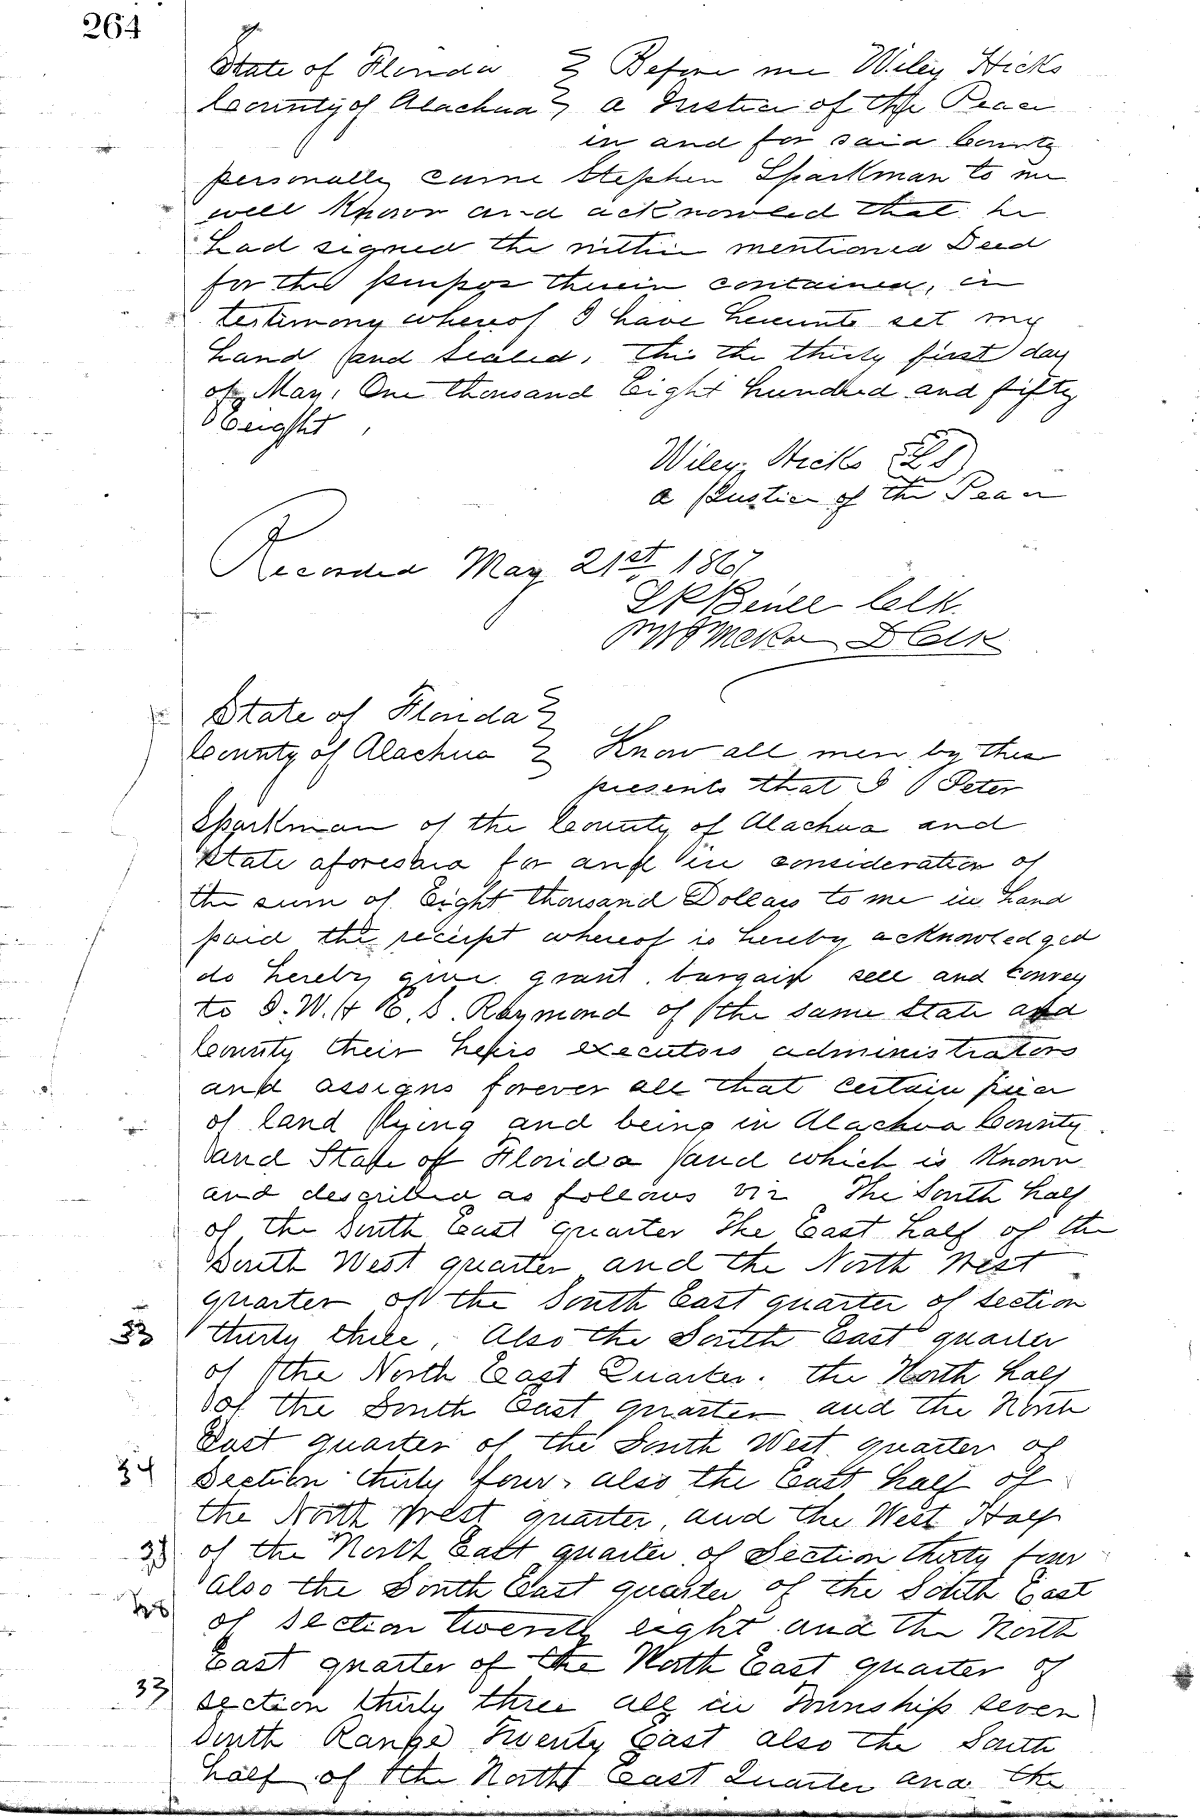 264
State of Florida } Before me Wiley Hicks
County of Alachua } a Justice of the Peace
in and for said County
personally came Stephen Sparkman to me
well Known and acknowled that he
had signed the within mentioned Deed
for the purpos therein contained, in
testimony whereof I have hereunto set my
hand and Sealed, this the thirty first day
of May, One thousand Eight hundred and fifty
Eeight,
Wiley Hicks (LS)
a Justice of the Peace
Recorded May 21st, 1867
Clk.
D Clk
State of Florida }
County of Alachua } Know all men by these
presents that I Peter
Sparkman of the County of Alachua and
State aforesaid for and in consideration of
the sum of Eight thousand Dollars to me in hand
paid the receipt whereof is hereby acknowledged
do hereby give grant. bargain sell and Convey
to I. W. & E. S. Raymond of the same State and
County their heirs executors administrators
and assigns forever all that certain piece
of land lying and being in Alachua County
and State of Florida and which is Known
and described as follows viz The South half
of the South East quarter The East half of the
South West quarter and the North West
quarter of the South East quarter of section
33 thirty three, Also the South East quarter
of the North East Quarter. the North half
of the South East quarter and the North
East quarter of the South West quarter of
34 Section thirty four, also the East half of
the North West quarter, and the West Half
of the North East quarter of Section thirty four
also the South East quarter of the South East
of section twenty eight and the North
East quarter of the North East quarter of
33 section thirty three all in Township seven
South Range Twenty East also the South
half of the North East Quarter and the